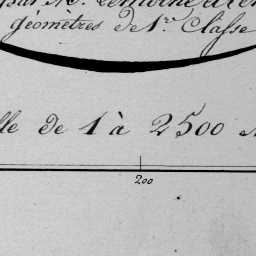 par M.
géomètres de 1.re Classe
lle de 1 à 2500
200